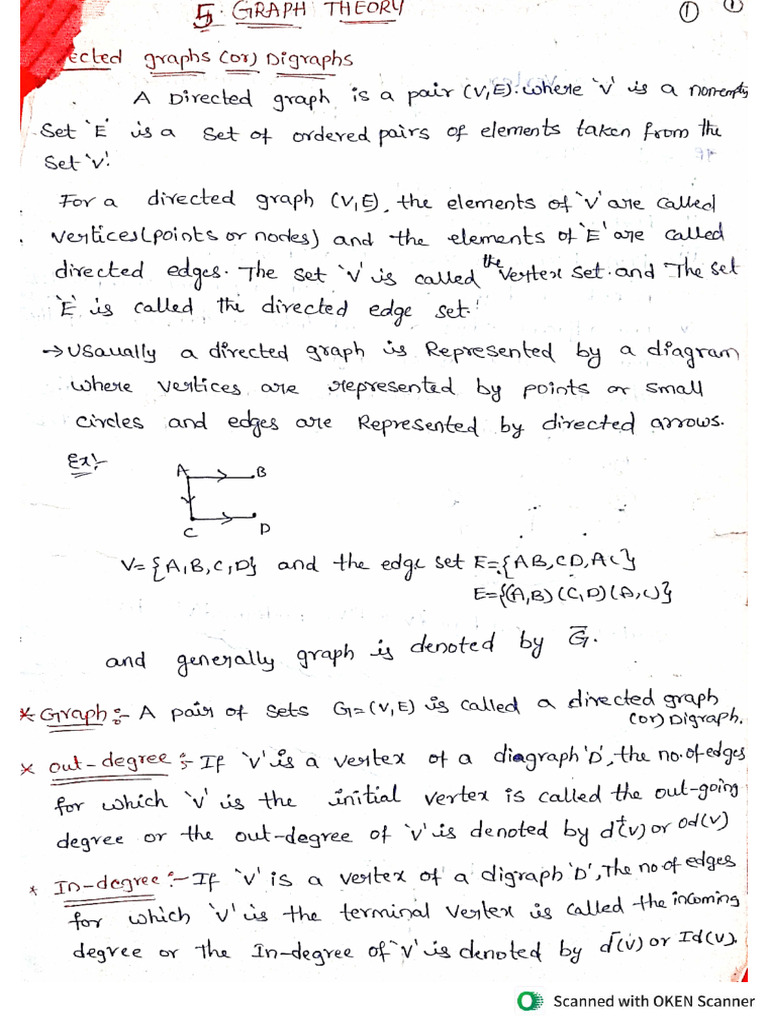 5. GRAPH THEORY
1
1
ected graphs (or) Digraphs
A Directed graph is a pair (V,E). where 'V' is a nonempty
Set 'E' is a set of ordered pairs of elements taken from the
Set 'V'.
For a directed graph (V,E), the elements of 'V' are called
vertices(points or nodes) and the elements of 'E' are called
directed edges. The set 'V' is called the vertex set. and The set
'E' is called the directed edge set.
→ Usaually a directed graph is Represented by a diagram
where vertices are represented by points or small
circles and edges are Represented by directed arrows.
Ex:-
A B
C D
V={A,B,C,D} and the edge set E={AB,CD,AC}
E={(A,B)(C,D)(A,C)}
and generally graph is denoted by G̅.
* Graph:- A pair of sets G=(V,E) is called a directed graph
(or) Digraph.
* out-degree:- If 'V' is a vertex of a diagraph 'D', the no.of edges
for which 'V' is the initial vertex is called the out-going
degree or the out-degree of 'V' is denoted by d⁺(v) or od(v)
* In-degree:- If 'V' is a vertex of a digraph 'D', The no of edges
for which 'V' is the terminal vertex is called the incoming
degree or The In-degree of 'V' is denoted by d⁻(v) or Id(v).
Scanned with OKEN Scanner